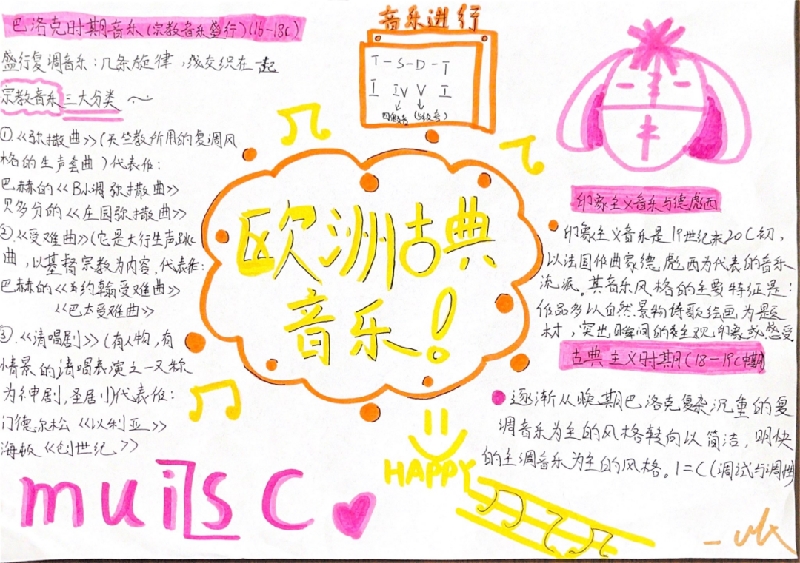 巴洛克时期音乐(宗教音乐盛行)(16-18c)
盛行复调音乐:几条旋律,或交织在一起
宗教音乐三大分类
①《弥撒曲》(天竺教所用的复调风
格的生声套曲)代表作:
巴赫的《B小调弥撒曲》
贝多分的《庄园弥撒曲》
②《受难曲》(它是大行生声跳
曲,以基督宗教为内容,代表作:
巴赫的《约翰受难曲》
《巴太受难曲》
③《清唱剧》(有人物,有
情景的清唱表演之一又称
为(神剧,圣剧)代表作:
门德尔松《以利亚》
海顿《创世纪》
音乐进行
T-S-D-T
I IV V I
欧洲古典
音乐!
印象主义音乐与德彪西
印象主义音乐是19世纪末20C初,
以法国作曲家德彪西为代表的音乐
流派。其音乐风格的主要特征是:
作品多以自然景物诗歌绘画为题
材,突出瞬间的主观印象或感受
古典主义时期(18-19c中期)
逐渐从晚期巴洛克复杂沉重的复
调音乐为主的风格转向以简洁,明快
的主调音乐为主的风格。1=C(调试与调性)
HAPPY
muisc